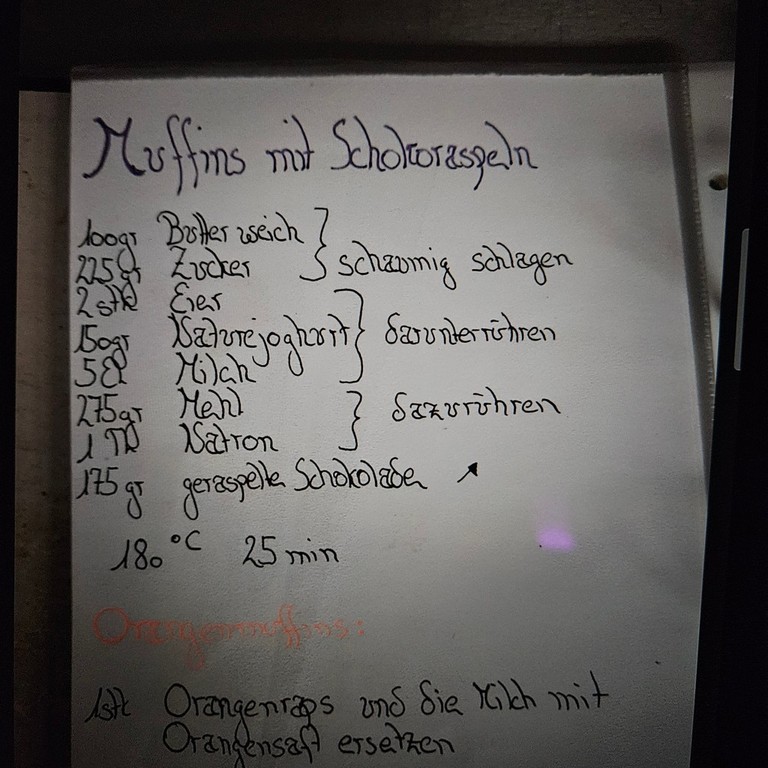 Muffins mit Schokoraspeln
100gr Butter weich
225gr Zucker } schaumig schlagen
2 stk Eier
150gr Naturejoghurt } darunterrühren
5El Milch
275gr Mehl } dazurühren
1 Tl Natron
175gr geraspelte Schokolade ↗
180 °C 25 min
Orangenmuffins:
1stk Orangenraps und die Milch mit
Orangensaft ersetzen